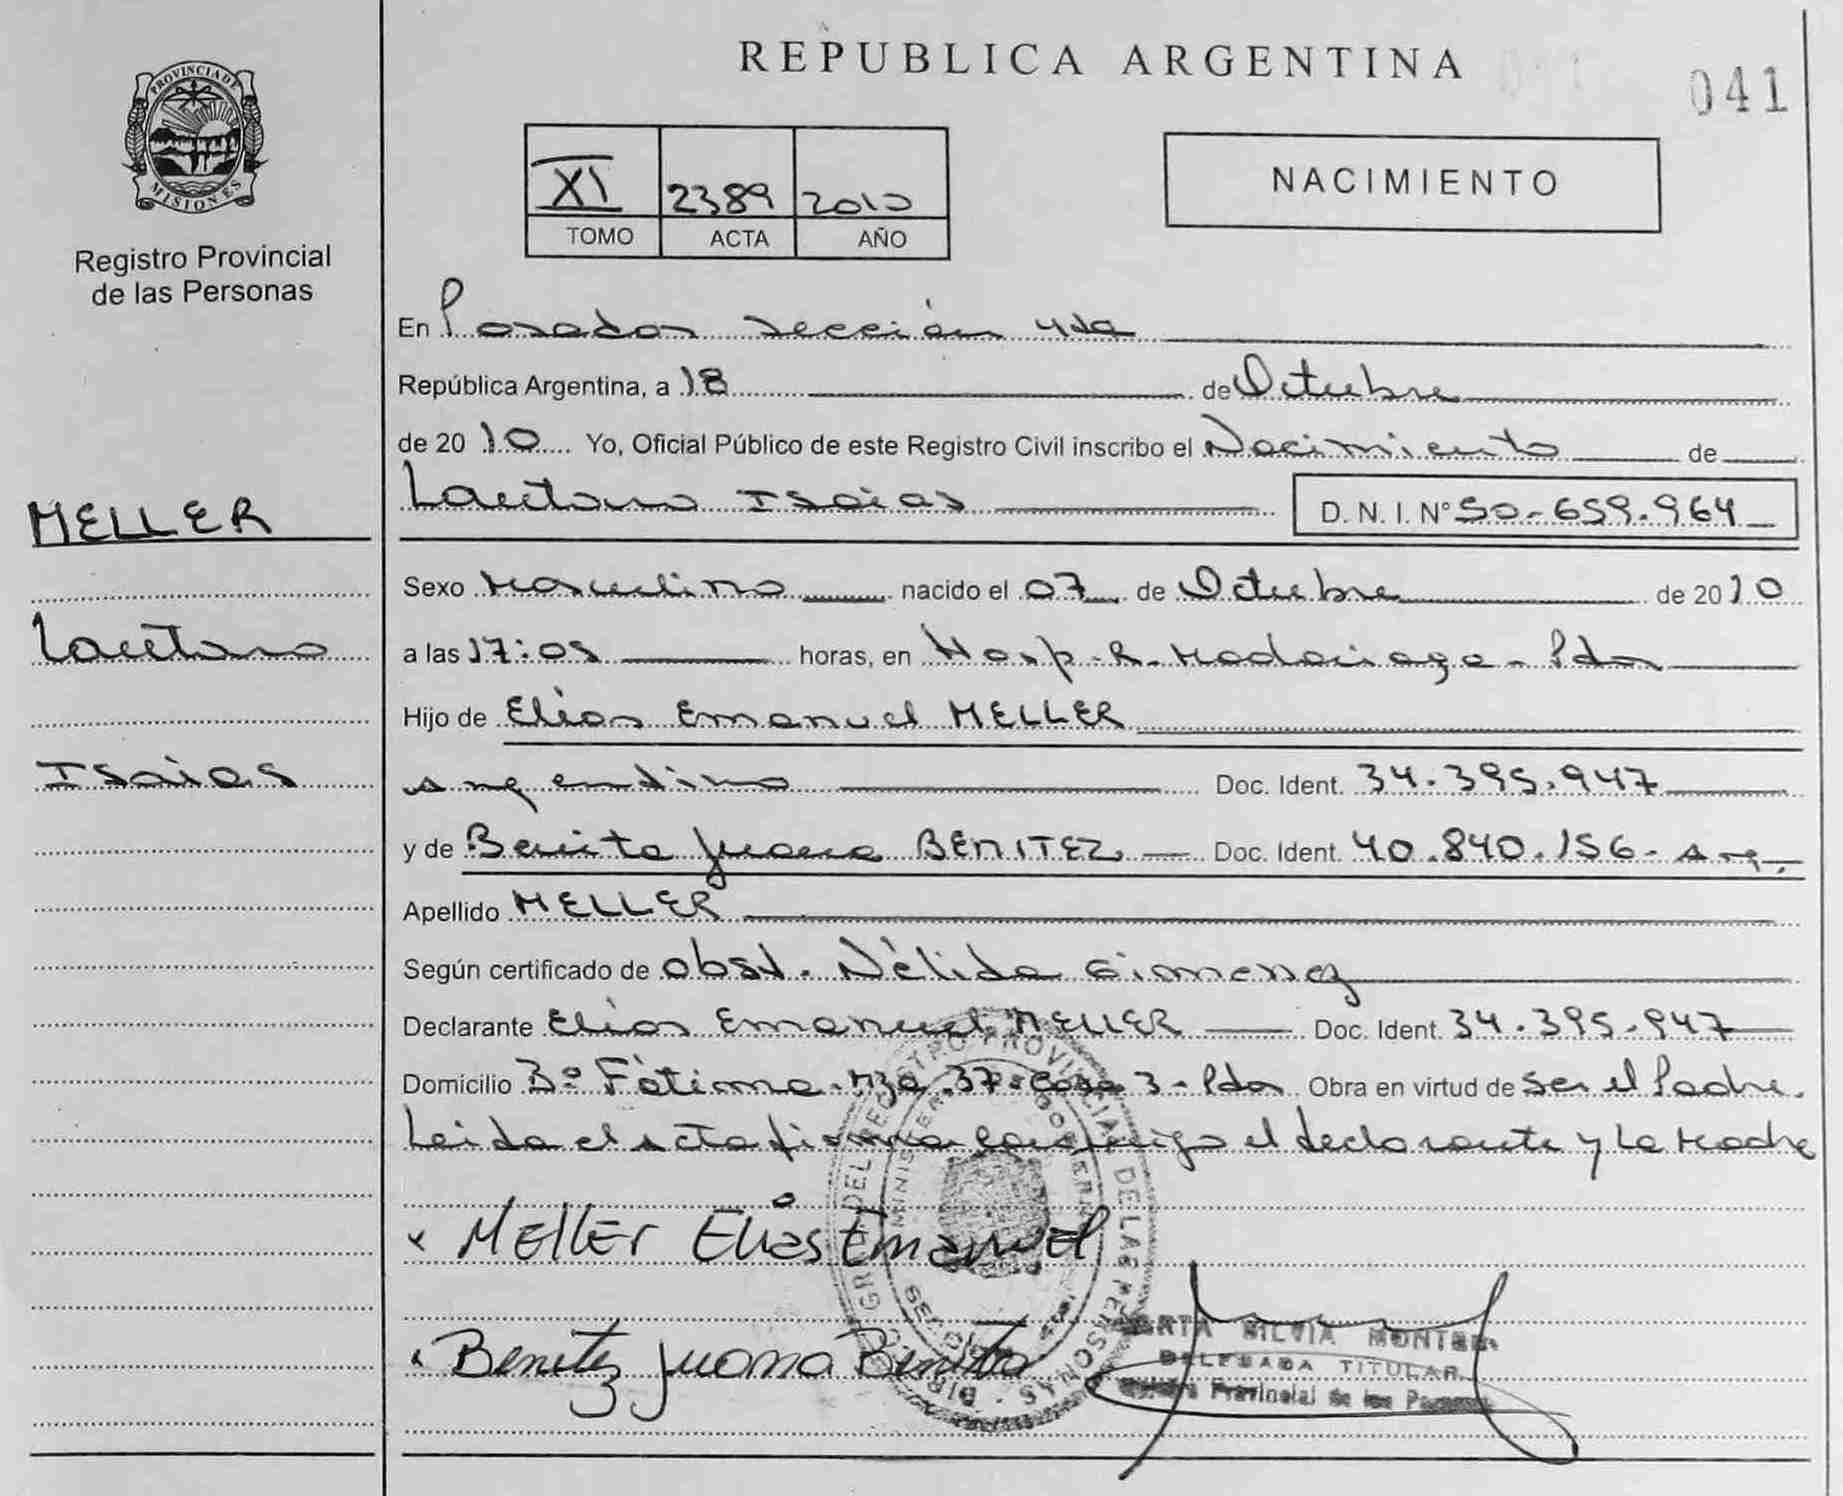 REPUBLICA ARGENTINA
041
PROVINCIA DE
MISIONES
Registro Provincial
de las Personas
XI 2389 2010
TOMO ACTA AÑO
NACIMIENTO
En Posadas sección 4ta
República Argentina, a 18 de Octubre
de 2010 Yo, Oficial Público de este Registro Civil inscribo el Nacimiento de
Lautaro Isaias D. N. I. N° 50-659.964
MELLER
Lautaro
Isaias
Sexo Masculino nacido el 07 de Octubre de 2010
a las 17:05 horas, en Hosp. R. Madariaga - Pdas
Hijo de Elías Emanuel MELLER
Argentino Doc. Ident. 34.395.947
y de Benita Juana BENITEZ Doc. Ident. 40.840.156- Arg.
Apellido MELLER
Según certificado de obst. Nélida Gimenez
Declarante Elías Emanuel MELLER Doc. Ident. 34.395.947
Domicilio Bº Fátima. Mza. 37. Casa 3 - Pdas Obra en virtud de ser el Padre.
Leida el acta firma conmigo el declarante y La Madre
x MEllEr Elías Emanuel
Benitez Juana Benita
SILVIA
DELEGADA TITULAR
Provincial de las
REGISTRO PROVINCIAL DE LAS PERSONAS